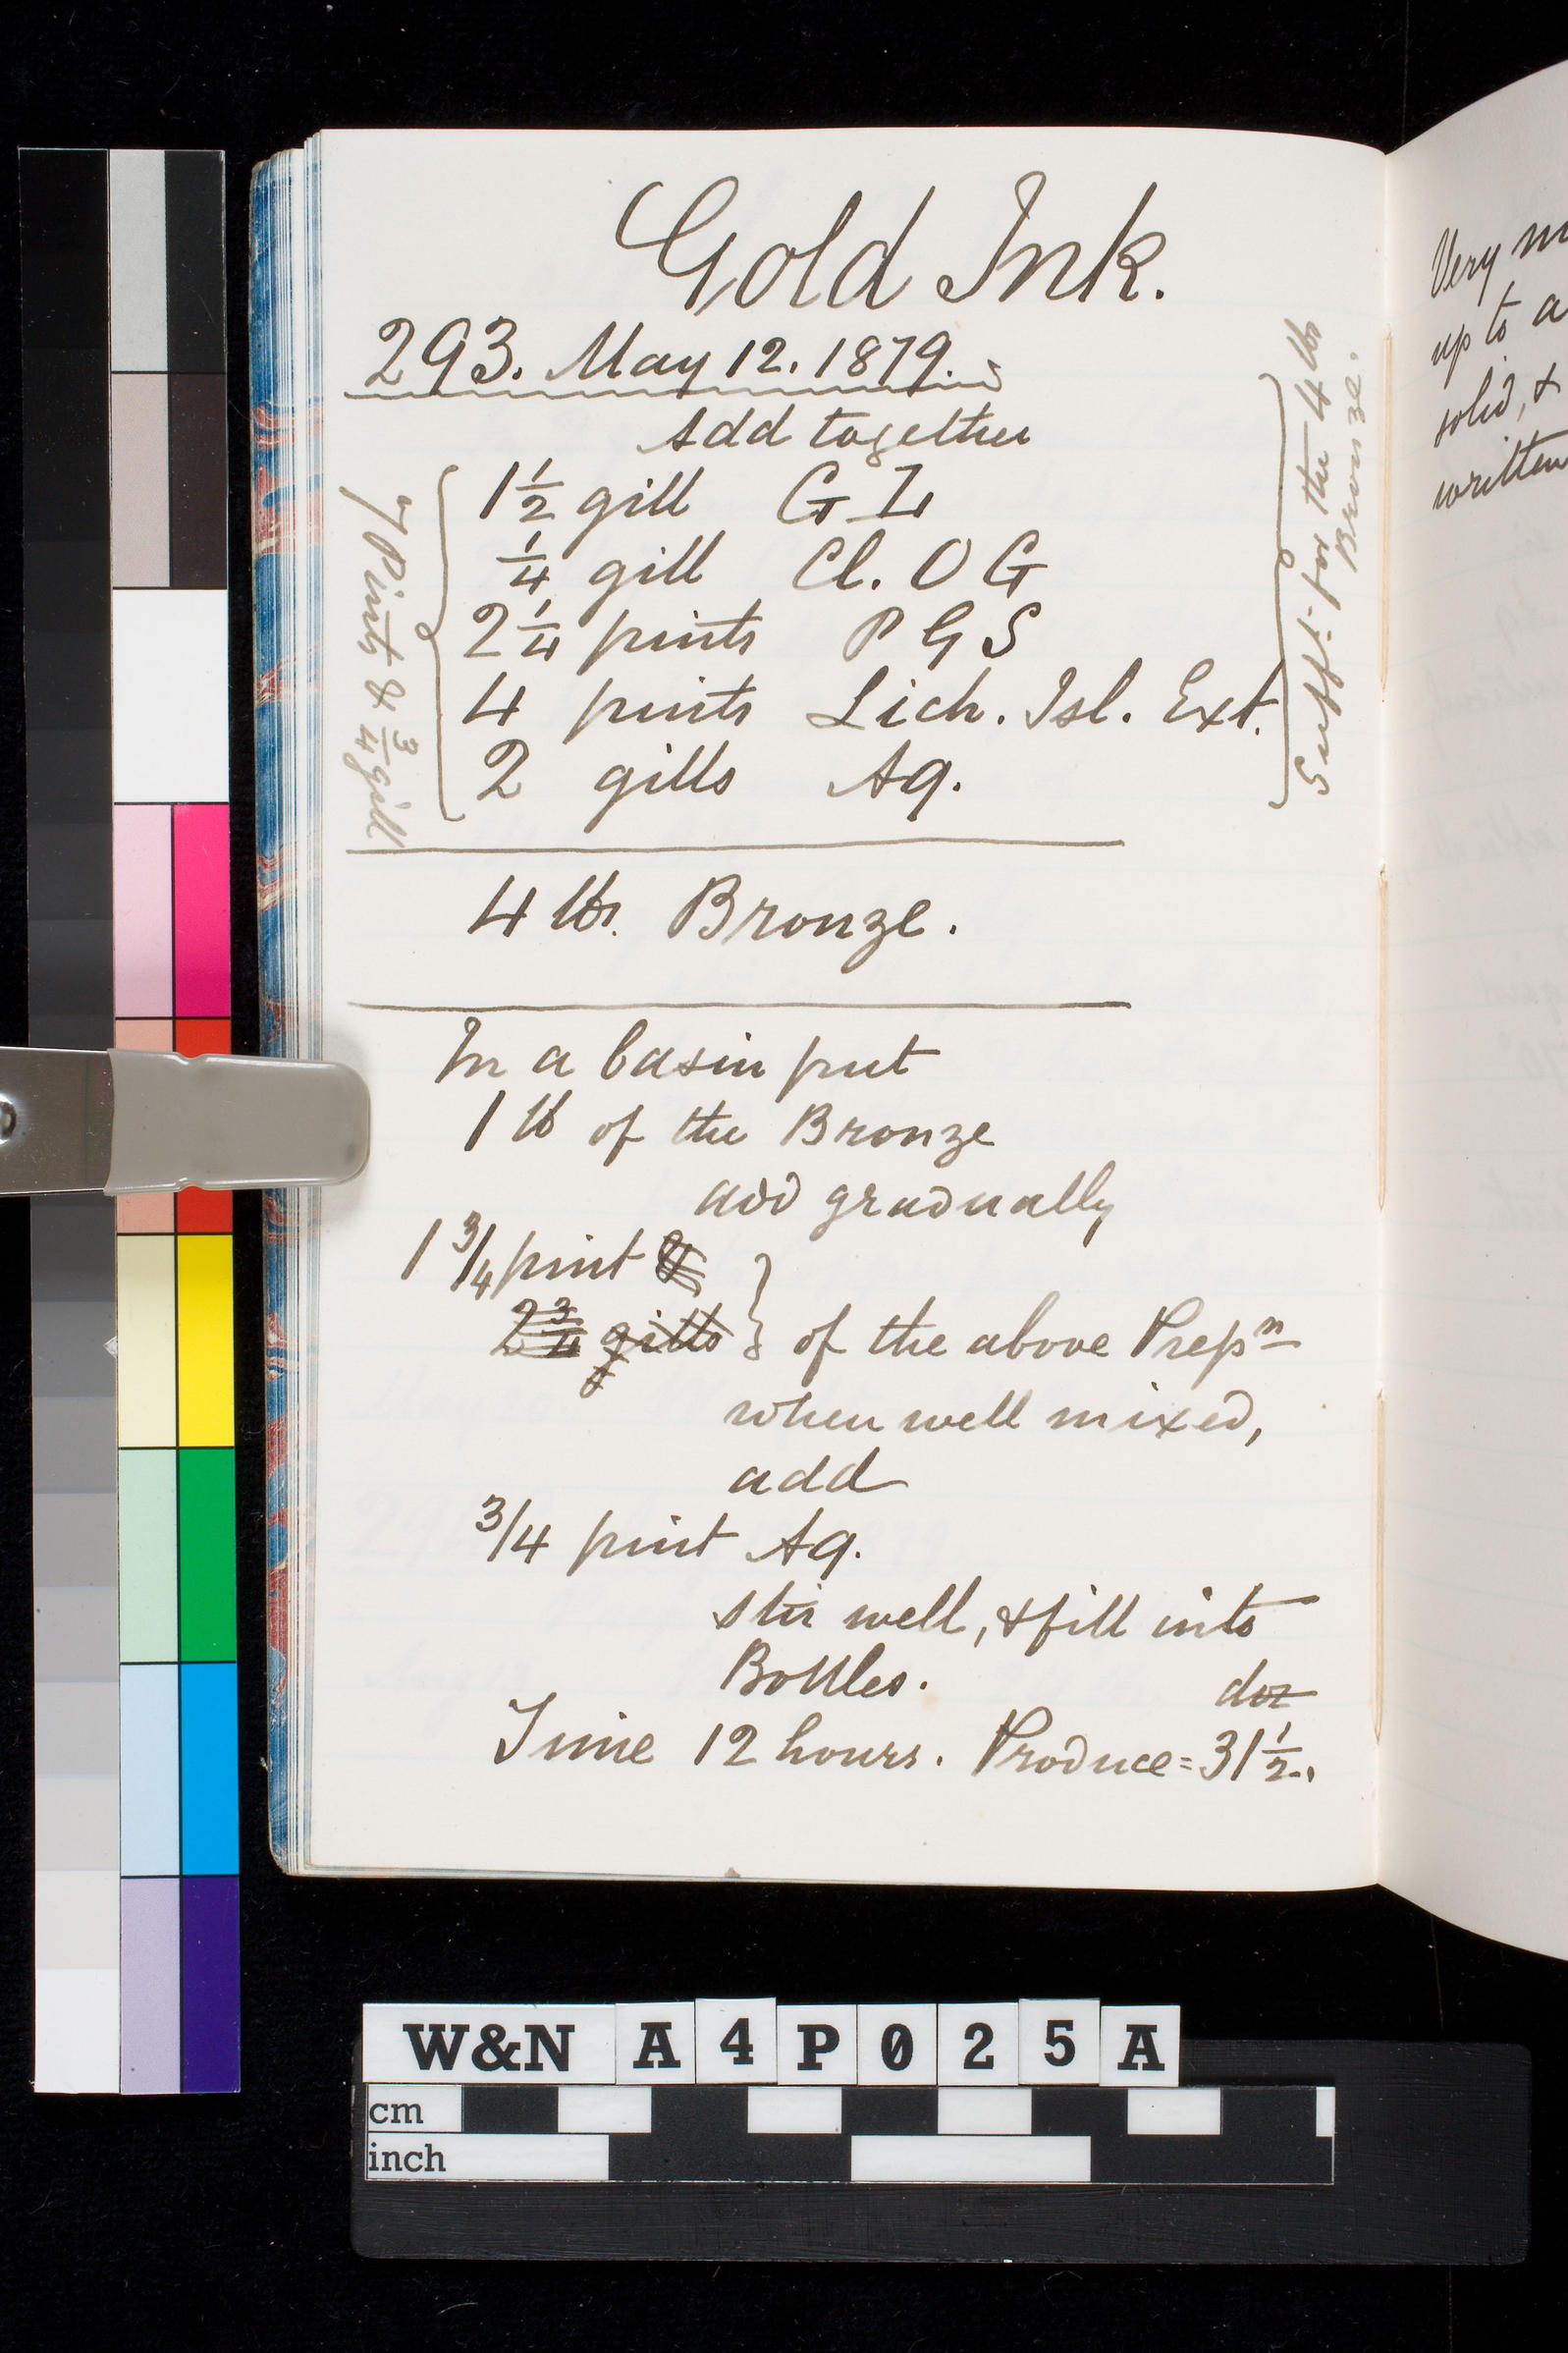 Gold Ink.
293. May 12. 1879.
Add together
1½ gill G I
¼ gill Cl. O G
2¼ pints P G S
4 pints Lich. Isl. Ext.
2 gills Aq.
7 Pints & ¾ gill
Suff.t for the 4 lbs
Bronze.
4 lbs. Bronze.
In a basin put
1 lb of the Bronze
add gradually
1 3/4 pint &
2¾ gills } of the above Prepn
when well mixed,
add
3/4 pint Aq.
stir well, & fill into
Bottles.
doz
Time 12 hours. Produce = 31½.
Very
up to a
solid, &
written
W&N A4P025A
cm
inch